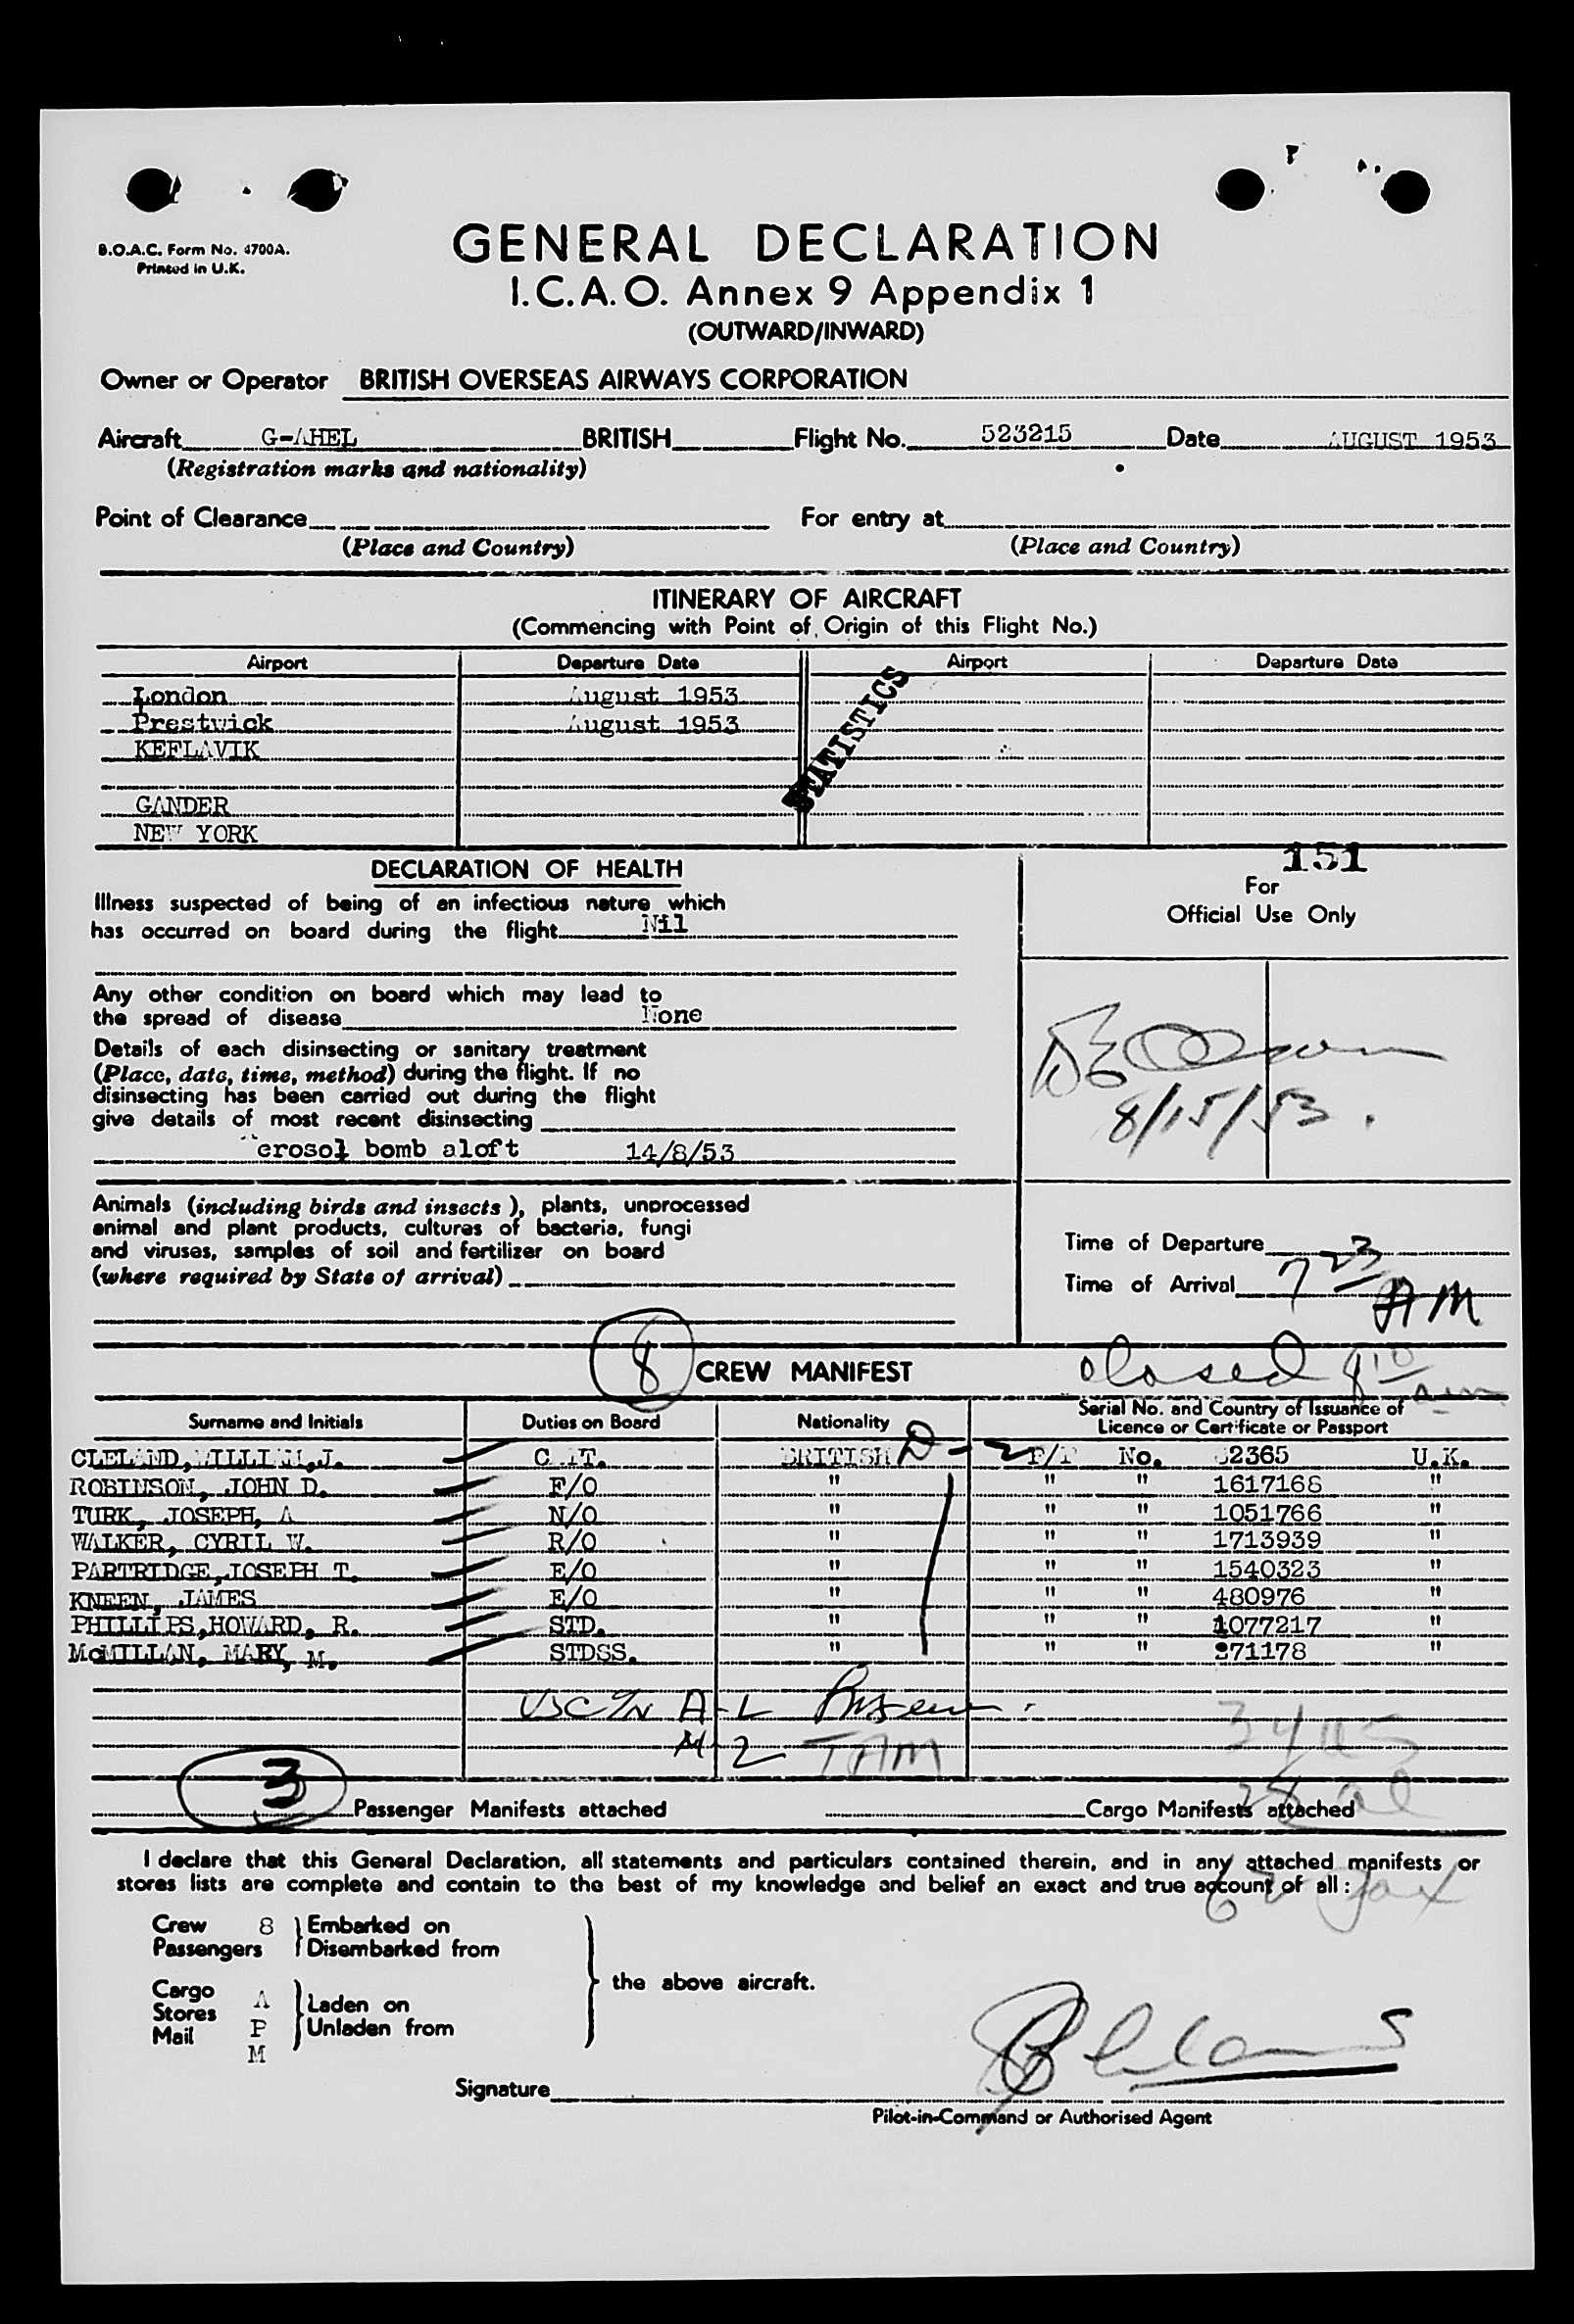 B.O.A.C. Form No. 4700A.
Printed in U.K.
GENERAL DECLARATION
I.C.A.O. Annex 9 Appendix 1
(OUTWARD/INWARD)
Owner or Operator BRITISH OVERSEAS AIRWAYS CORPORATION
Aircraft G-AHEL BRITISH Flight No. 523215 Date AUGUST 1953
(Registration marks and nationality)
Point of Clearance For entry at
(Place and Country) (Place and Country)
ITINERARY OF AIRCRAFT
(Commencing with Point of Origin of this Flight No.)
Airport Departure Date Airport Departure Date
London August 1953
Prestwick August 1953
KEFLAVIK
STATISTICS
GANDER
NEW YORK
151
DECLARATION OF HEALTH
For
Official Use Only
Illness suspected of being of an infectious nature which
has occurred on board during the flight Nil
Any other condition on board which may lead to
the spread of disease None
Details of each disinsecting or sanitary treatment
(Place, date, time, method) during the flight. If no
disinsecting has been carried out during the flight
give details of most recent disinsecting
erosol bomb aloft 14/8/53
8/15/53.
Animals (including birds and insects), plants, unprocessed
animal and plant products, cultures of bacteria, fungi
and viruses, samples of soil and fertilizer on board
(where required by State of arrival)
Time of Departure
Time of Arrival 7 23 AM
8 CREW MANIFEST closed 8 10 am
Surname and Initials Duties on Board Nationality Serial No. and Country of Issuance of
Licence or Certificate or Passport
CLELAND, WILLIAM, J. CAPT. BRITISH D-2 P/P No. 2365 U.K.
ROBINSON, JOHN D. F/O " " " 1617168 "
TURK, JOSEPH, A N/O " " " 1051766 "
WALKER, CYRIL W. R/O " " " 1713939 "
PARTRIDGE, JOSEPH T. E/O " " " 1540323 "
KNEEN, JAMES E/O " " " 480976 "
PHILLIPS, HOWARD, R. STD. " " " 1077217 "
McMILLAN, MARY, M. STDSS. " " " 871178 "
A-L
M-2 TAM
34 US
28 al
3 Passenger Manifests attached Cargo Manifests attached
I declare that this General Declaration, all statements and particulars contained therein, and in any attached manifests or
stores lists are complete and contain to the best of my knowledge and belief an exact and true account of all :
62 Tax
Crew 8 Embarked on
Passengers Disembarked from
the above aircraft.
Cargo A Laden on
Stores P Unladen from
Mail M
Signature
Pilot-in-Command or Authorised Agent